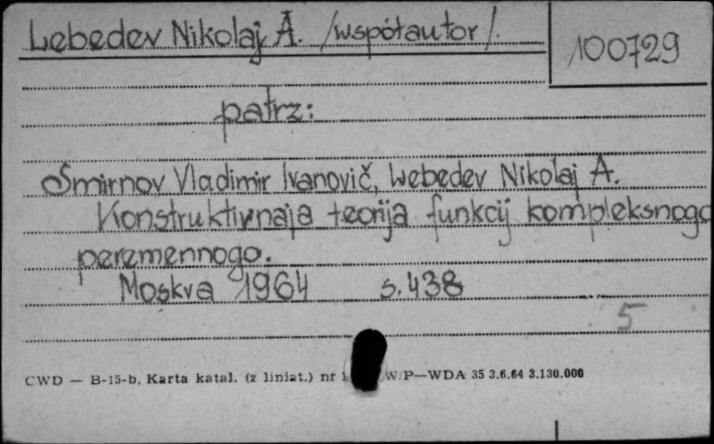 Lebedev Nikolaj A. /współautor/.
100729
patrz:
Smirnov Vladimir Ivanovič, Lebedev Nikolaj A.
Konstruktivnaja teorija funkcij kompleksnogo
peremennogo.
Moskva 1964 s. 438
5
CWD — B-15-b, Karta katal. (z liniat.) nr W/P—WDA 35 3.6.64 3.130.000